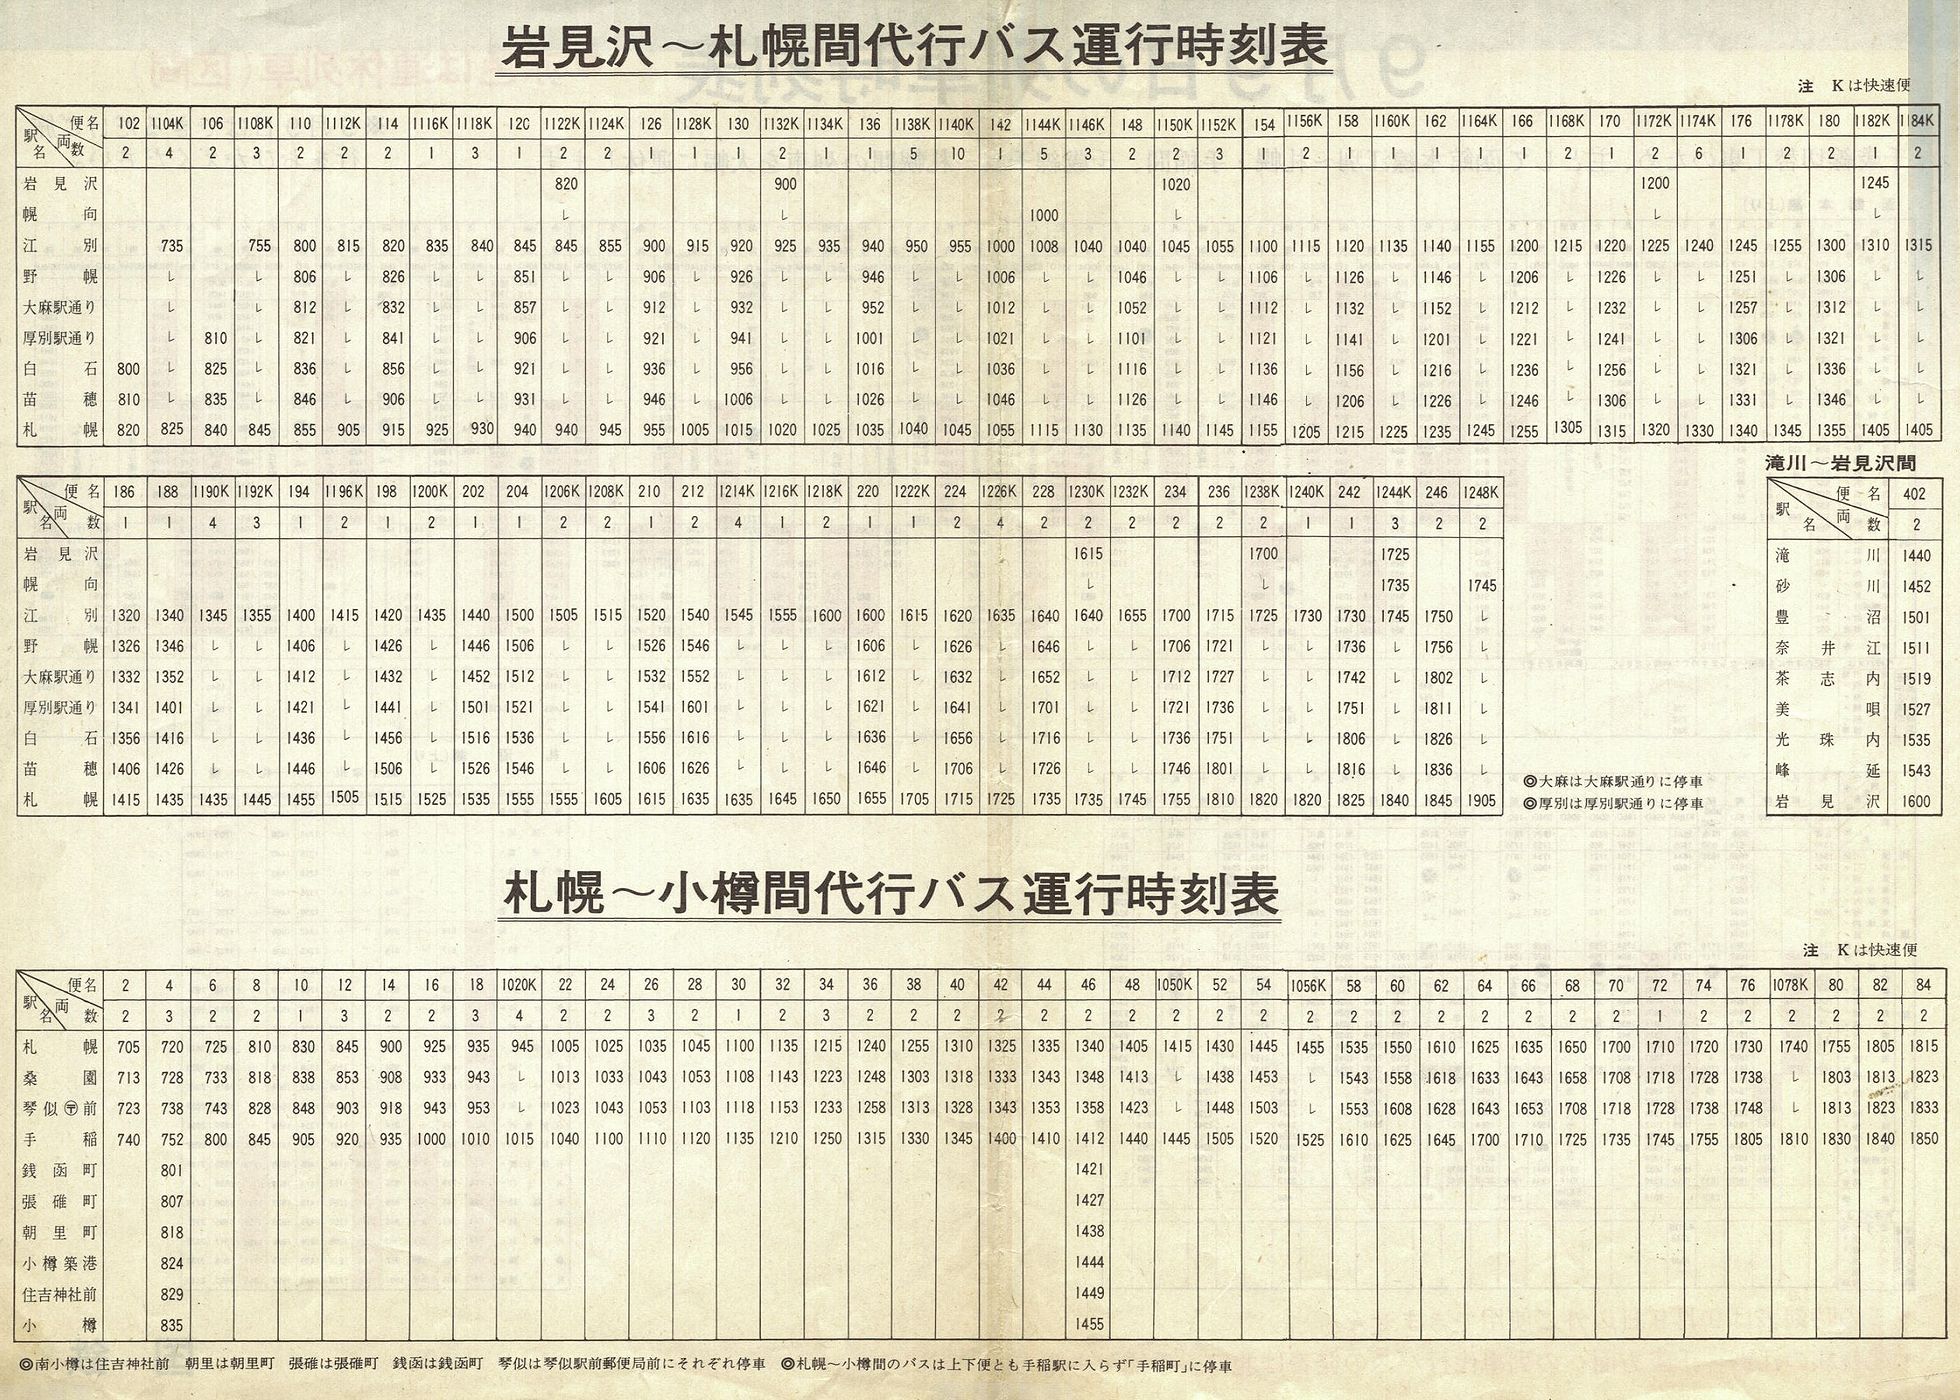 岩見沢〜札幌間代行バス運行時刻表
注 Kは快速便
駅名 両数 便名 102 1104K 106 1108K 110 1112K 114 1116K 1118K 120 1122K 1124K 126 1128K 130 1132K 1134K 136 1138K 1140K 142 1144K 1146K 148 1150K 1152K 154 1156K 158 1160K 162 1164K 166 1168K 170 1172K 1174K 176 1178K 180 1182K 1184K
2 4 2 3 2 2 2 1 3 1 2 2 1 1 1 2 1 1 5 10 1 5 3 2 2 3 1 2 1 1 1 1 1 2 1 2 6 1 2 2 1 2
岩見沢 820 900 1020 1200 1245
幌向 レ レ 1000 レ レ レ
江別 735 755 800 815 820 835 840 845 845 855 900 915 920 925 935 940 950 955 1000 1008 1040 1040 1045 1055 1100 1115 1120 1135 1140 1155 1200 1215 1220 1225 1240 1245 1255 1300 1310 1315
野幌 レ レ 806 レ 826 レ レ 851 レ レ 906 レ 926 レ レ 946 レ レ 1006 レ レ 1046 レ レ 1106 レ 1126 レ 1146 レ 1206 レ 1226 レ レ 1251 レ 1306 レ レ
大麻駅通り レ レ 812 レ 832 レ レ 857 レ レ 912 レ 932 レ レ 952 レ レ 1012 レ レ 1052 レ レ 1112 レ 1132 レ 1152 レ 1212 レ 1232 レ レ 1257 レ 1312 レ レ
厚別駅通り レ 810 レ 821 レ 841 レ レ 906 レ レ 921 レ 941 レ レ 1001 レ レ 1021 レ レ 1101 レ レ 1121 レ 1141 レ 1201 レ 1221 レ 1241 レ レ 1306 レ 1321 レ レ
白石 800 レ 825 レ 836 レ 856 レ レ 921 レ レ 936 レ 956 レ レ 1016 レ レ 1036 レ レ 1116 レ レ 1136 レ 1156 レ 1216 レ 1236 レ 1256 レ レ 1321 レ 1336 レ レ
苗穂 810 レ 835 レ 846 レ 906 レ レ 931 レ レ 946 レ 1006 レ レ 1026 レ レ 1046 レ レ 1126 レ レ 1146 レ 1206 レ 1226 レ 1246 レ 1306 レ レ 1331 レ 1346 レ レ
札幌 820 825 840 845 855 905 915 925 930 940 940 945 955 1005 1015 1020 1025 1035 1040 1045 1055 1115 1130 1135 1140 1145 1155 1205 1215 1225 1235 1245 1255 1305 1315 1320 1330 1340 1345 1355 1405 1405
駅名 両数 便名 186 188 1190K 1192K 194 1196K 198 1200K 202 204 1206K 1208K 210 212 1214K 1216K 1218K 220 1222K 224 1226K 228 1230K 1232K 234 236 1238K 1240K 242 1244K 246 1248K
1 1 4 3 1 2 1 2 1 1 2 2 1 2 4 1 2 1 1 2 4 2 2 2 2 2 2 1 1 3 2 2
岩見沢 1615 1700 1725
幌向 レ レ 1735 1745
江別 1320 1340 1345 1355 1400 1415 1420 1435 1440 1500 1505 1515 1520 1540 1545 1555 1600 1600 1615 1620 1635 1640 1640 1655 1700 1715 1725 1730 1730 1745 1750 レ
野幌 1326 1346 レ レ 1406 レ 1426 レ 1446 1506 レ レ 1526 1546 レ レ レ 1606 レ 1626 レ 1646 レ レ 1706 1721 レ レ 1736 レ 1756 レ
大麻駅通り 1332 1352 レ レ 1412 レ 1432 レ 1452 1512 レ レ 1532 1552 レ レ レ 1612 レ 1632 レ 1652 レ レ 1712 1727 レ レ 1742 レ 1802 レ
厚別駅通り 1341 1401 レ レ 1421 レ 1441 レ 1501 1521 レ レ 1541 1601 レ レ レ 1621 レ 1641 レ 1701 レ レ 1721 1736 レ レ 1751 レ 1811 レ
白石 1356 1416 レ レ 1436 レ 1456 レ 1516 1536 レ レ 1556 1616 レ レ レ 1636 レ 1656 レ 1716 レ レ 1736 1751 レ レ 1806 レ 1826 レ
苗穂 1406 1426 レ レ 1446 レ 1506 レ 1526 1546 レ レ 1606 1626 レ レ レ 1646 レ 1706 レ 1726 レ レ 1746 1801 レ レ 1816 レ 1836 レ
札幌 1415 1435 1435 1445 1455 1505 1515 1525 1535 1555 1555 1605 1615 1635 1635 1645 1650 1655 1705 1715 1725 1735 1735 1745 1755 1810 1820 1820 1825 1840 1845 1905
◎大麻は大麻駅通りに停車
◎厚別は厚別駅通りに停車
滝川〜岩見沢間
駅名 両数 便名 402
2
滝川 1440
砂川 1452
豊沼 1501
奈井江 1511
茶志内 1519
美唄 1527
光珠内 1535
峰延 1543
岩見沢 1600
札幌〜小樽間代行バス運行時刻表
注 Kは快速便
駅名 両数 便名 2 4 6 8 10 12 14 16 18 1020K 22 24 26 28 30 32 34 36 38 40 42 44 46 48 1050K 52 54 1056K 58 60 62 64 66 68 70 72 74 76 1078K 80 82 84
2 3 2 2 1 3 2 2 3 4 2 2 3 2 1 2 3 2 2 2 2 2 2 2 2 2 2 2 2 2 2 2 2 2 2 1 2 2 2 2 2 2
札幌 705 720 725 810 830 845 900 925 935 945 1005 1025 1035 1045 1100 1135 1215 1240 1255 1310 1325 1335 1340 1405 1415 1430 1445 1455 1535 1550 1610 1625 1635 1650 1700 1710 1720 1730 1740 1755 1805 1815
桑園 713 728 733 818 838 853 908 933 943 レ 1013 1033 1043 1053 1108 1143 1223 1248 1303 1318 1333 1343 1348 1413 レ 1438 1453 レ 1543 1558 1618 1633 1643 1658 1708 1718 1728 1738 レ 1803 1813 1823
琴似〶前 723 738 743 828 848 903 918 943 953 レ 1023 1043 1053 1103 1118 1153 1233 1258 1313 1328 1343 1353 1358 1423 レ 1448 1503 レ 1553 1608 1628 1643 1653 1708 1718 1728 1738 1748 レ 1813 1823 1833
手稲 740 752 800 845 905 920 935 1000 1010 1015 1040 1100 1110 1120 1135 1210 1250 1315 1330 1345 1400 1410 1412 1440 1445 1505 1520 1525 1610 1625 1645 1700 1710 1725 1735 1745 1755 1805 1810 1830 1840 1850
銭函町 801 1421
張碓町 807 1427
朝里町 818 1438
小樽築港 824 1444
住吉神社前 829 1449
小樽 835 1455
◎南小樽は住吉神社前 朝里は朝里町 張碓は張碓町 銭函は銭函町 琴似は琴似駅前郵便局前にそれぞれ停車 ◎札幌〜小樽間のバスは上下便とも手稲駅に入らず「手稲町」に停車